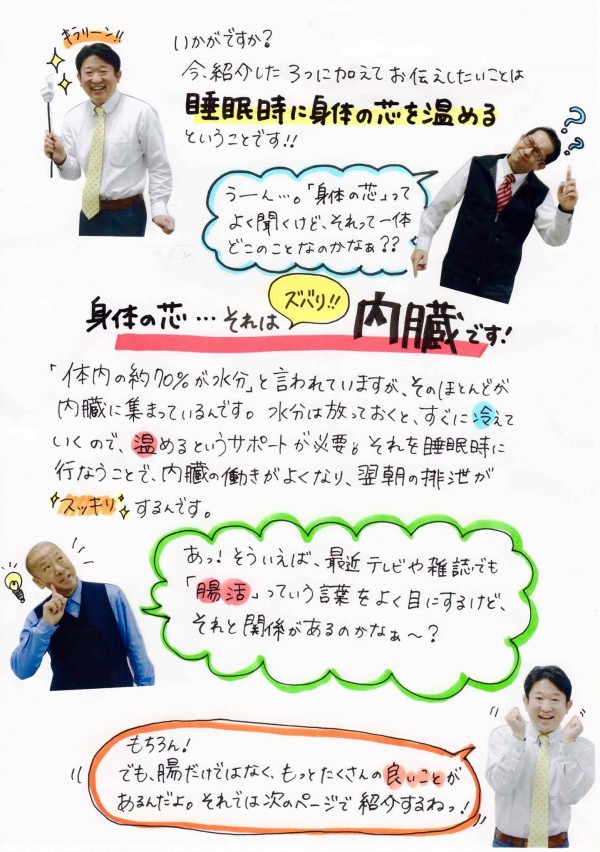 キラリーン!!
いかがですか?
今、紹介した3つに加えてお伝えしたいことは
睡眠時に身体の芯を温める
ということです!!
??
うーん…。「身体の芯」って
よく聞くけど、それって一体
どこのことなのかなぁ??
身体の芯…それは ズバリ!! 内臓です!
「体内の約70%が水分」と言われていますが、そのほとんどが
内臓に集まっているんです。水分は放っておくと、すぐに冷えて
いくので、温めるというサポートが必要。それを睡眠時に
行なうことで、内臓の働きがよくなり、翌朝の排泄が
スッキリするんです。
あっ!そういえば、最近テレビや雑誌でも
「腸活」っていう言葉をよく目にするけど、
それと関係があるのかなぁ〜?
もちろん!
でも、腸だけではなく、もっとたくさんの良いことが
あるんだよ。それでは次のページで紹介するねっ!